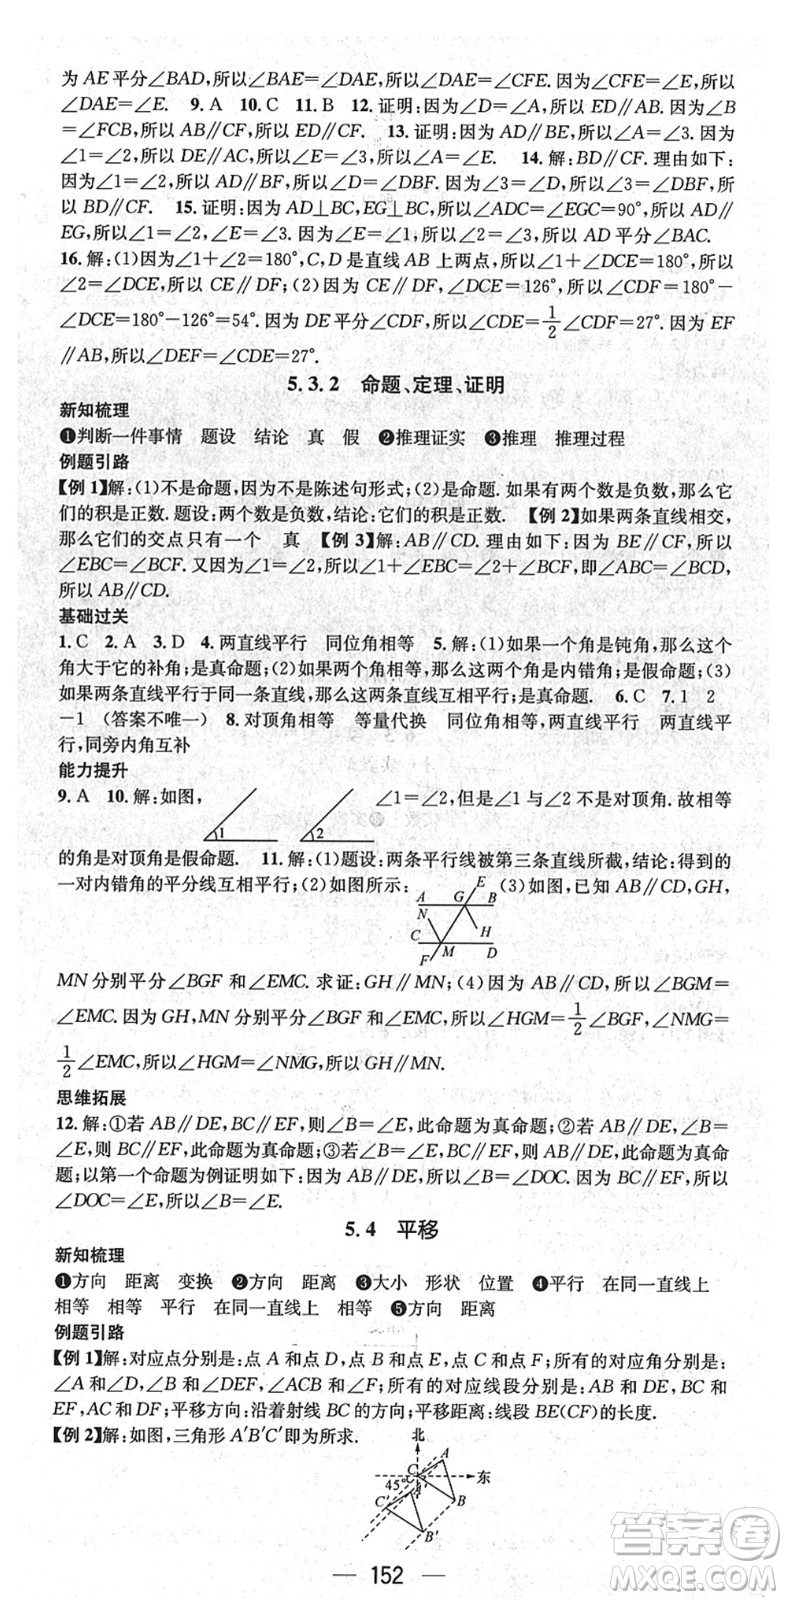 为 AE 平分∠BAD,所以∠BAE=∠DAE,所以∠DAE=∠CFE. 因为∠CFE=∠E,所以
∠DAE=∠E. 9. A 10. C 11. B 12. 证明:因为∠D=∠A,所以ED∥AB. 因为∠B
=∠FCB,所以AB∥CF,所以ED∥CF. 13. 证明:因为AD∥BE,所以∠A=∠3. 因为
∠1=∠2,所以DE∥AC,所以∠3=∠E,所以∠A=∠E. 14. 解:BD∥CF. 理由如下:
因为∠1=∠2,所以AD∥BF,所以∠D=∠DBF. 因为∠3=∠D,所以∠3=∠DBF,所
以BD∥CF. 15. 证明:因为AD⊥BC,EG⊥BC,所以∠ADC=∠EGC=90°,所以AD∥
EG,所以∠1=∠2,∠E=∠3. 因为∠E=∠1,所以∠2=∠3,所以AD平分∠BAC.
16. 解:(1)因为∠1+∠2=180°,C,D是直线AB上两点,所以∠1+∠DCE=180°,所以
∠2=∠DCE,所以CE∥DF;(2)因为CE∥DF,∠DCE=126°,所以∠CDF=180°-
∠DCE=180°-126°=54°. 因为DE平分∠CDF,所以∠CDE=1/2∠CDF=27°. 因为EF
∥AB,所以∠DEF=∠CDE=27°.
5.3.2 命题、定理、证明
新知梳理
❶判断一件事情 题设 结论 真 假 ❷推理证实 ❸推理 推理过程
例题引路
【例1】解:(1)不是命题,因为不是陈述句形式;(2)是命题. 如果有两个数是负数,那么它
们的积是正数. 题设:两个数是负数,结论:它们的积是正数. 【例2】如果两条直线相交,
那么它们的交点只有一个 真 【例3】解:AB∥CD. 理由如下:因为BE∥CF,所以
∠EBC=∠BCF. 又因为∠1=∠2,所以∠EBC+∠1=∠BCF+∠2,即∠ABC=∠BCD,
所以AB∥CD.
基础过关
1. C 2. A 3. D 4. 两直线平行 同位角相等 5. 解:(1)如果一个角是钝角,那么这个
角大于它的补角;是真命题;(2)如果两个角相等,那么这两个角是内错角;是假命题;(3)
如果两条直线平行于同一条直线,那么这两条直线互相平行;是真命题. 6. C 7. 1 2
-1 (答案不唯一) 8. 对顶角相等 等量代换 同位角相等,两直线平行 两直线平
行,同旁内角互补
能力提升
9. A 10. 解:如图, 1 2 ∠1=∠2,但是∠1与∠2不是对顶角. 故相等
的角是对顶角是假命题. 11. 解:(1)题设:两条平行线被第三条直线所截,结论:得到的
一对内错角的平分线互相平行;(2)如图所示: (3)如图,已知AB∥CD,GH,
A G E B
N H
C F M D
MN分别平分∠BGF和∠EMC. 求证:GH∥MN;(4)因为AB∥CD,所以∠BGM=
∠EMC. 因为GH,MN分别平分∠BGF和∠EMC,所以∠HGM=1/2∠BGF,∠NMG=
1/2∠EMC,所以∠HGM=∠NMG,所以GH∥MN.
思维拓展
12. 解:①若AB∥DE,BC∥EF,则∠B=∠E,此命题为真命题;②若AB∥DE,∠B=
∠E,则BC∥EF,此命题为真命题;③若∠B=∠E,BC∥EF,则AB∥DE,此命题为真命
题;以第一个命题为例证明如下:因为AB∥DE,所以∠B=∠DOC. 因为BC∥EF,所以
∠DOC=∠E,所以∠B=∠E.
5.4 平移
新知梳理
❶方向 距离 变换 ❷方向 距离 ❸大小 形状 位置 ❹平行 在同一直线上
相等 相等 平行 在同一直线上 相等 ❺方向 距离
例题引路
【例1】解:对应点分别是:点A和点D,点B和点E,点C和点F;所有的对应角分别是:
∠A和∠D,∠ABC和∠DEF,∠ACB和∠F;所有的对应线段分别是:AB和DE,BC和
EF,AC和DF;平移方向:沿着射线BC的方向,平移距离:线段BE(CF)的长度.
【例2】解:如图,三角形A′B′C′即为所求.
北
A
C 东
45°
C′ A′
B
B′
152
答案圈
MXQE.COM